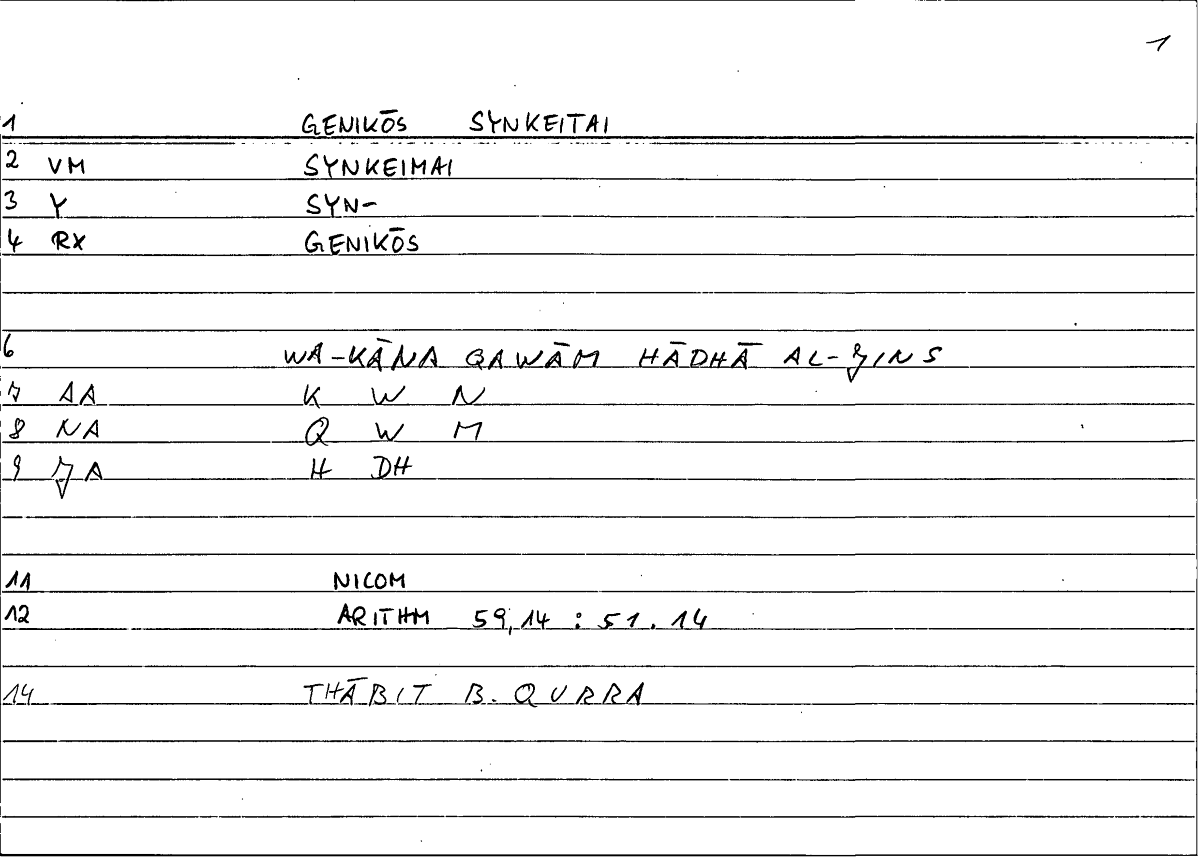 1
1 GENIKŌS SYNKEITAI
2 VM SYNKEIMAI
3 Y SYN-
4 RX GENIKŌS
6 WA-KĀNA QAWĀM HĀDHĀ AL-JINS
7 AA K W N
8 NA Q W M
9 JA H DH
11 NICOM
12 ARITHM 59,14 : 51.14
14 THĀBIT B. QURRA